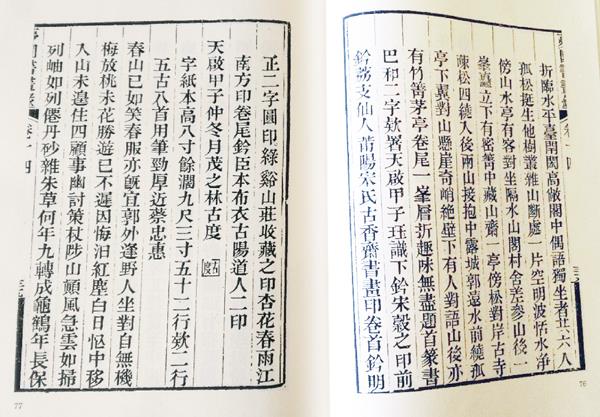 折臨水平臺閈閎高敞閣中偶語獨坐者共六人
孤松挺生他樹叢雜山斷處一片空朗波恬水淨
傍山水亭有客對坐隔水山閣村舍差參山後一
峯矗立下有密菁中藏山齋一亭傍松對岸古寺
疎松四繞入後兩山接抱中露城郭遠水前繞孤
亭下翼對山懸崖奇峭絶壁下有人對語山後亦
有竹菁茅亭卷尾一峯層折趣味無盡題首篆書
巴和二字欵署天啟甲子珏識下鈐朱瑴之印前
鈐荔支仙人莆陽宋氏古香齋書畫印卷首鈐明
卷十四
三
76
正二字圓印綠谿山莊收藏之印杏花春雨江
南方印卷尾鈐臣本布衣古陽道人二印
天啟甲子仲冬月茂之林古度
古度
字紙本高八寸餘濶九尺三寸五十二行欵二行
五古八首用筆勁厚近蔡忠惠
春山已如笑春服亦旣宜郭外逢野人坐對自無機
梅放桃未花勝遊已不遲因悔汩紅塵白日忽中移
入山未遑住四顧事幽討策杖陟山顛風急雲如掃
列岫如列僊丹砂雜朱草何年九轉成龜鶴年長保
卷十四
77